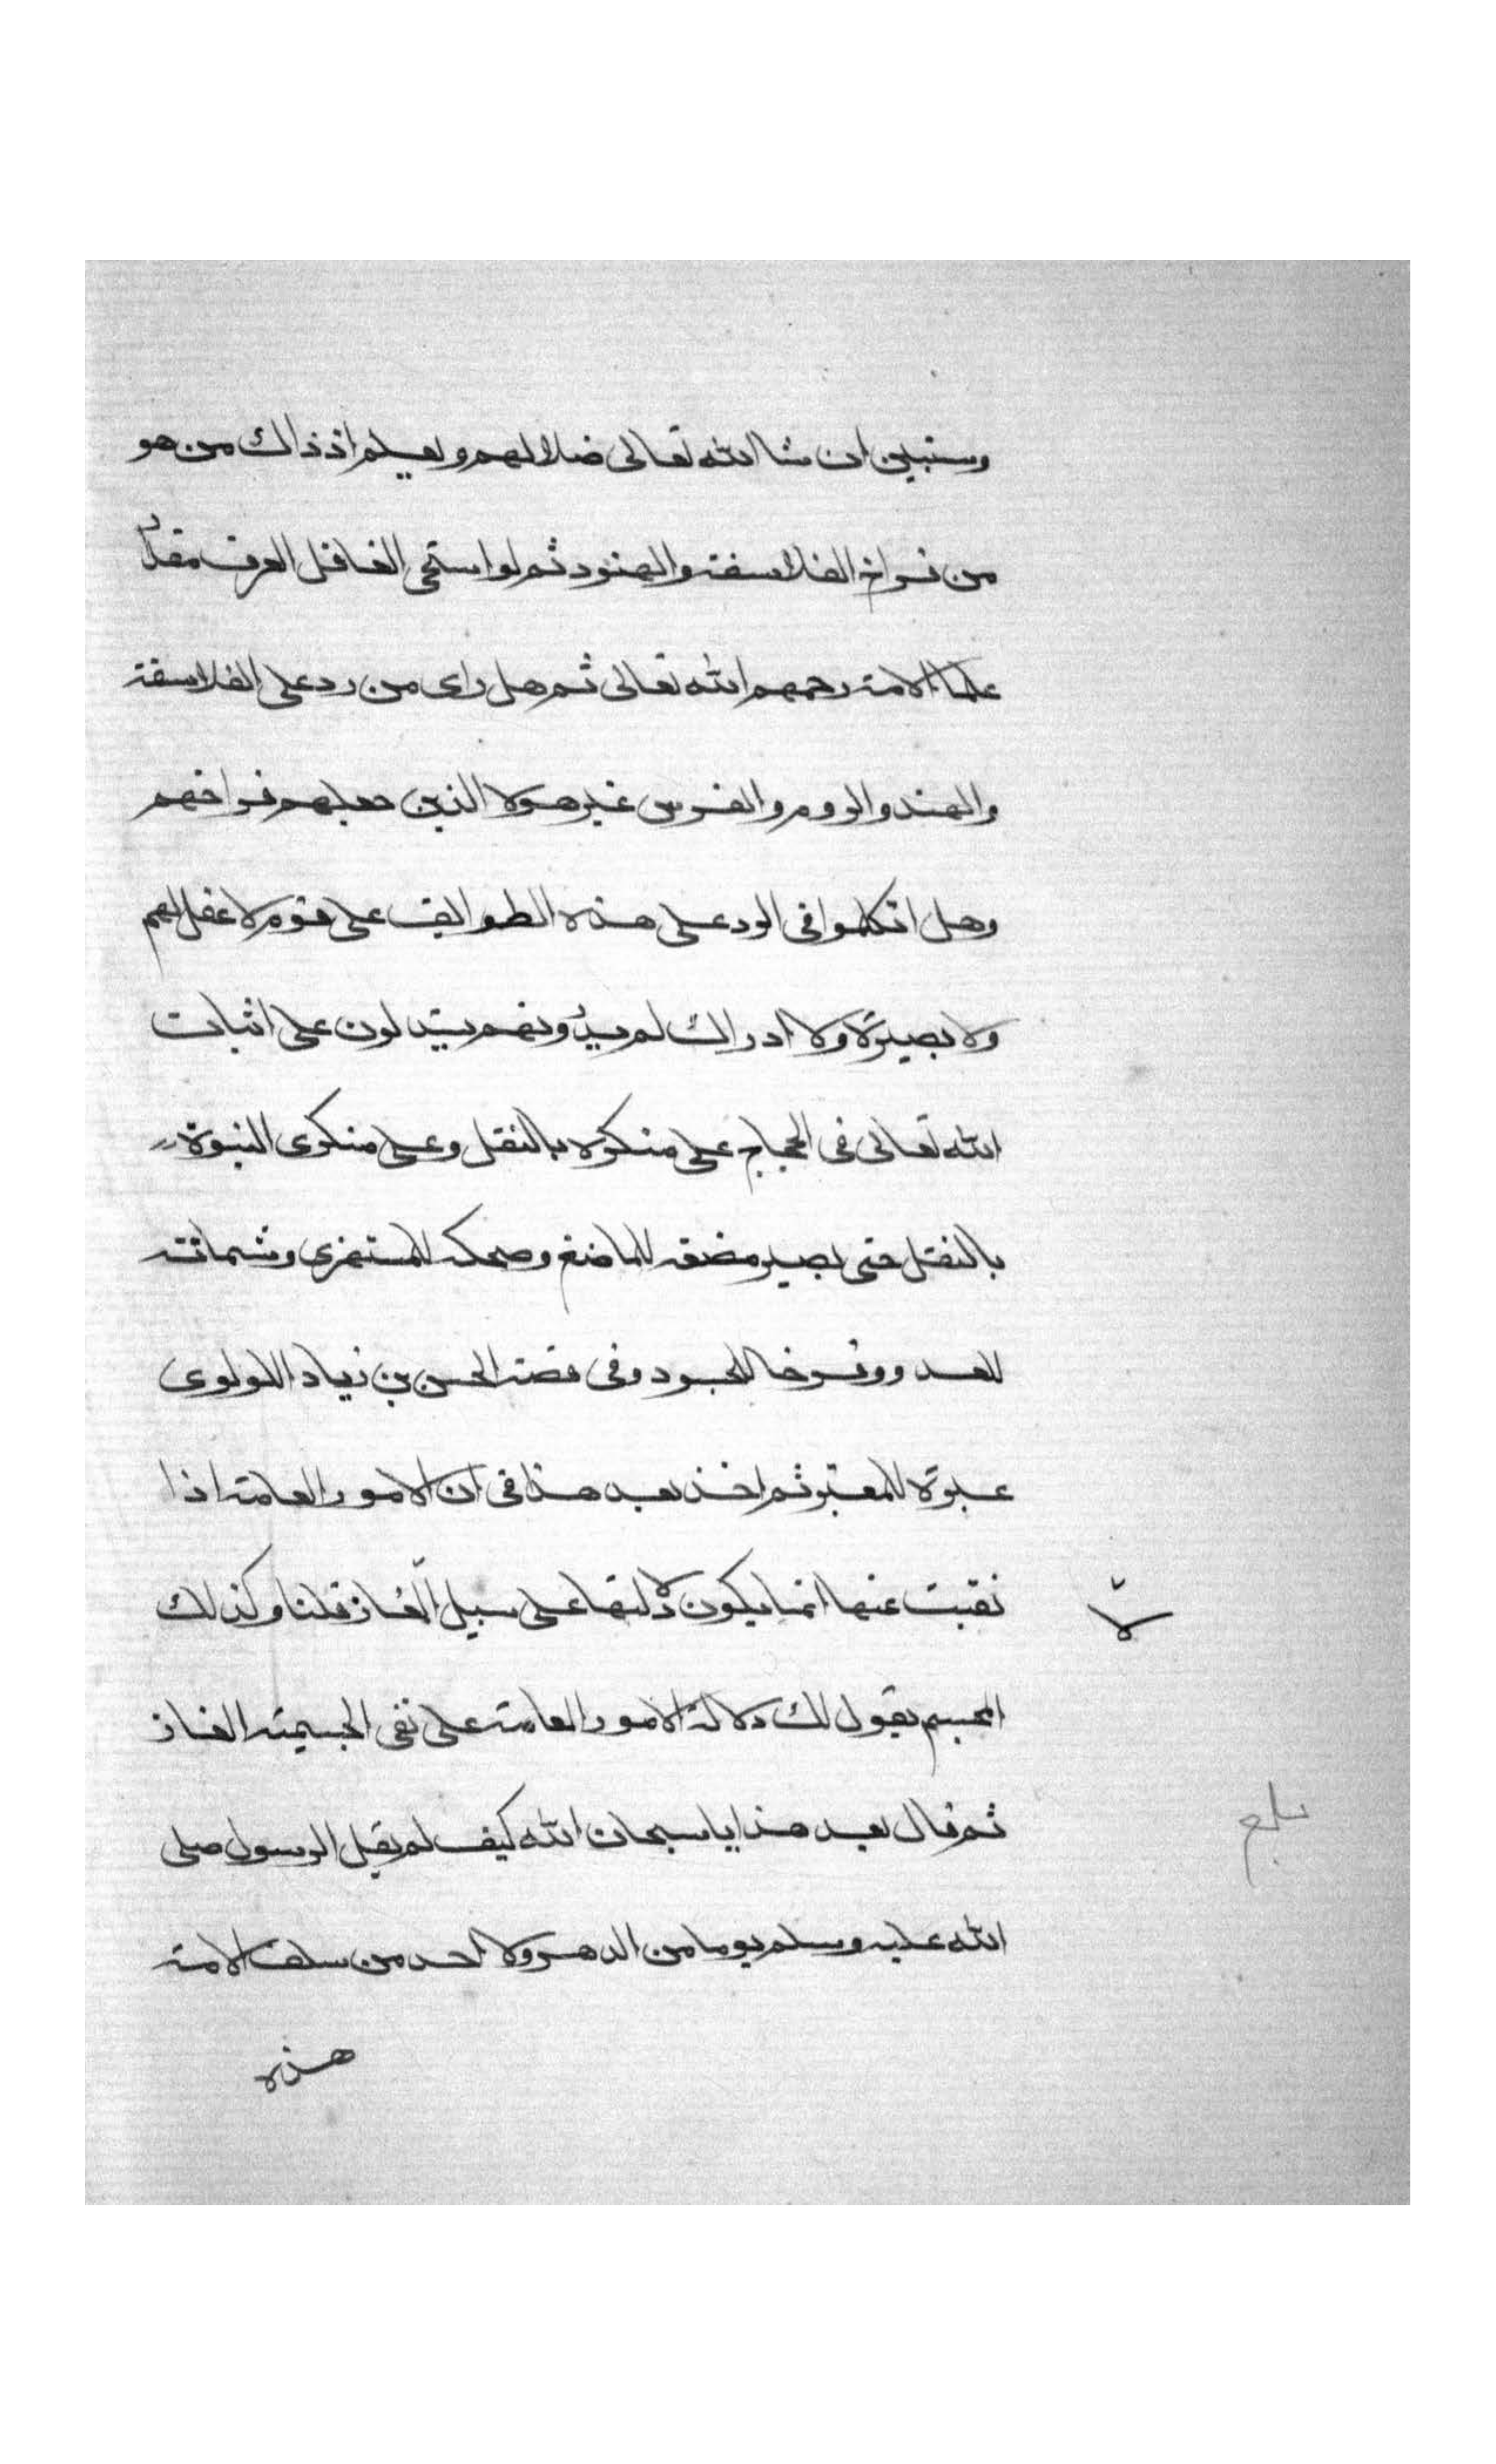 وسنبين ان شا الله تعالى ضلالهم وليعلم اذ ذاك من هو
من فراخ الفلاسفة والهنود ثم لو استحى الغافل لعرف مقدار
علما الامة رحمهم الله تعالى ثم هل راى من رد على الفلاسفة
والهند والروم والفرس غير هولا الذين جعلهم فراخهم
وهل اتكلوا فى الرد على هذه الطوايف على قوم لا عقل لهم
ولا بصيرة ولا ادراك ثم يذرونهم يستدلون على اثبات
الله تعالى فى الحجاج على منكره بالنقل وعلى منكرى النبوة
بالنقل حتى يصير مضغة للماضغ وضحكة للمستهزى وشماتة
للعدو وفرحا للحسود وفى قصة الحسن بن زياد اللولوى
عبرة للمعتبر ثم اخذ بعد هذا فى ان الامور العامة اذا
نقيت عنها انما يكون دلالتها على سبيل الالغاز قلنا وكذلك
لا
المجسم يقول لك دلالة الامور العامة على نفى الجسمية الغاز
ثم قال بعد هذا يا سبحان الله كيف لم يقل الرسول صلى
بلغ
الله عليه وسلم يوما من الدهر ولا احد من سلف الامة
هذه